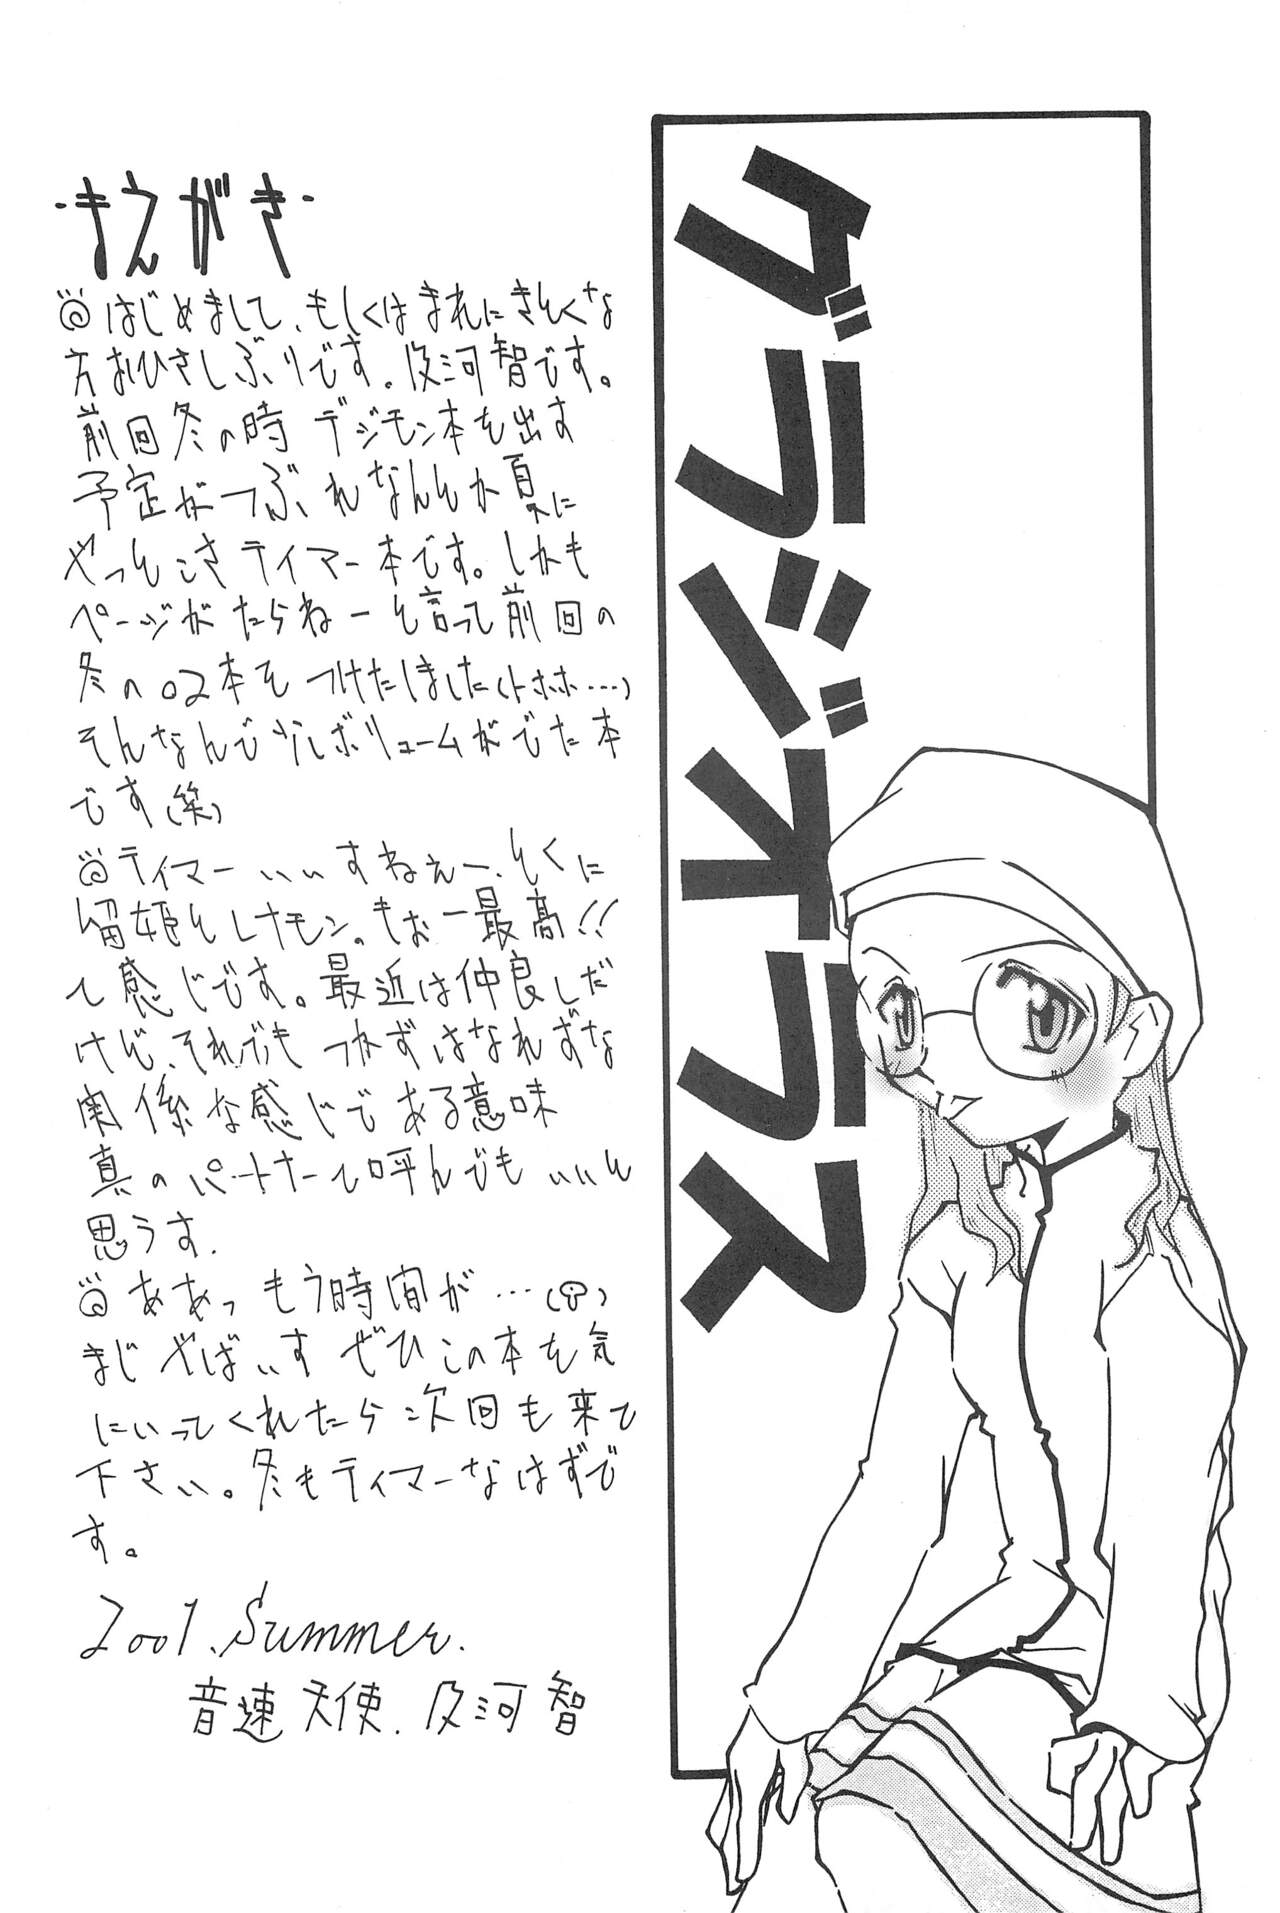 グラジオラス
・まえがき・
◎はじめまして、もしくはまれにきとくな
方おひさしぶりです。及河智です。
前回冬の時 デジモン本を出す
予定がつぶれなんとか夏に
やっとこさテイマー本です。しかも
ページがたらねーと言って前回の
冬の02本をつけたしました(トホホ…)
そんなんで少しボリュームがでた本
です(笑)
◎テイマーいいすねぇー、とくに
留姫とレナモン。もぉー最高!!
て感じです。最近は仲良しだ
けど、それでもつかずはなれずな
関係な感じである意味
真のパートナーて呼んでもいいと
思うす.
◎ああっ もう時間が…()
まじやばいす ぜひこの本を気
にいってくれたら次回も来て
下さい。冬もテイマーなはずで
す。
2001.Summer.
音速天使.及河智